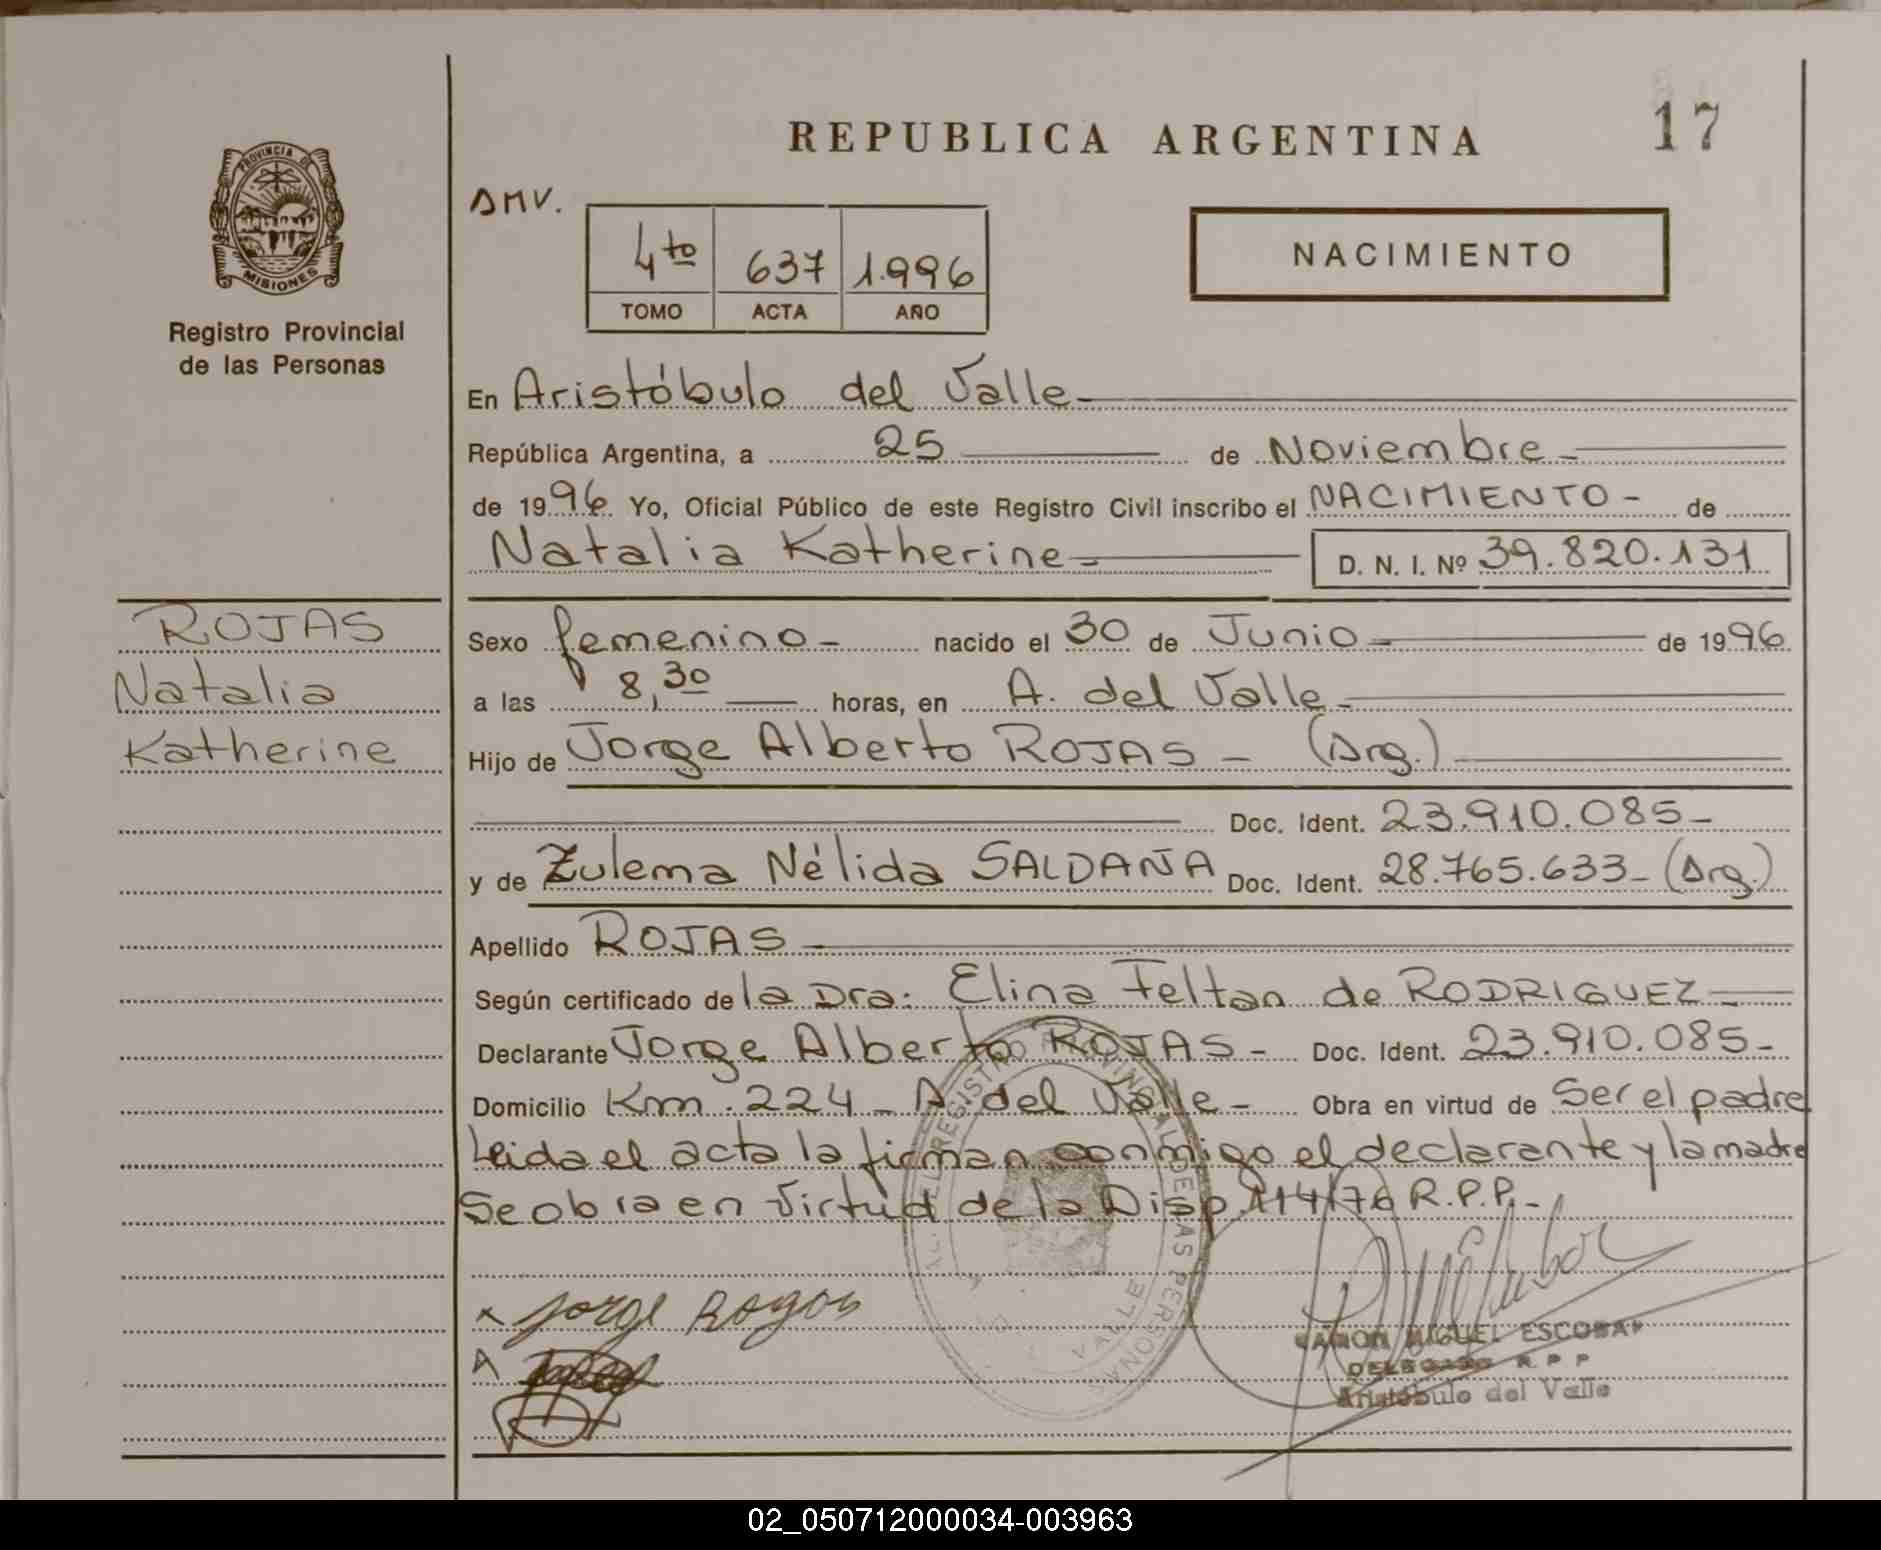 REPUBLICA ARGENTINA
17
PROVINCIA DE
MISIONES
Registro Provincial
de las Personas
AMV.
4to 637 1.996
TOMO ACTA AÑO
NACIMIENTO
En Aristóbulo del Valle
República Argentina, a 25 de Noviembre
de 1996 Yo, Oficial Público de este Registro Civil inscribo el NACIMIENTO - de
Natalia Katherine D. N. I. Nº 39.820.131
ROJAS
Natalia
Katherine
Sexo femenino - nacido el 30 de Junio de 1996
a las 8,30 horas, en A. del Valle
Hijo de Jorge Alberto ROJAS - (Arg.)
Doc. Ident. 23.910.085-
y de Zulema Nélida SALDAÑA Doc. Ident. 28.765.633- (Arg.)
Apellido ROJAS
Según certificado de la Dra: Elina Feltan de RODRIGUEZ
Declarante Jorge Alberto ROJAS - Doc. Ident. 23.910.085-
Domicilio Km. 224 - A. del Valle - Obra en virtud de Ser el padre
Leida el acta la firman conmigo el declarante y la madre
Se obra en Virtud de la Disp. 114/76 R.P.P.-
REGISTRO PROVINCIAL DE LAS PERSONAS
VALLE
x Jorge Rogas
MIGUEL ESCOBAR
DELEGADO R.P.P
Aristóbulo del Valle
02_050712000034-003963